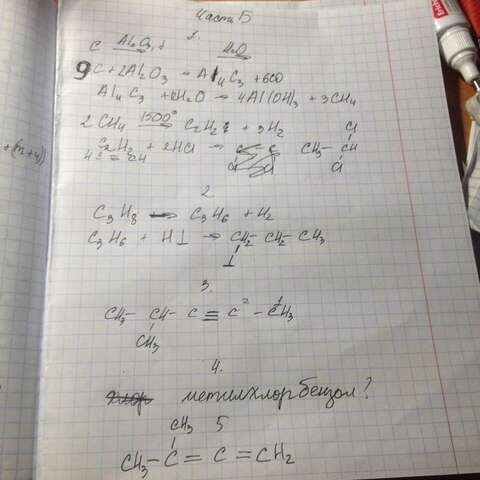 Часть Б
1.
C Al₂O₃, t H₂O
9C + 2Al₂O₃ → Al₄C₃ + 6CO
Al₄C₃ + 12H₂O → 4Al(OH)₃ + 3CH₄
2CH₄ 1500° C₂H₂ + 3H₂
C₂H₂ + 2HCl → CH₃ – CH
Cl
Cl
HC ≡ CH
+(n+4))
2.
C₃H₈ → C₃H₆ + H₂
C₃H₆ + HI → CH₂ – CH₂ – CH₃
I
3.
CH₃ – CH – C ≡ C² – C¹H₃
CH₃
4.
метилхлорбензол?
5
CH₃
CH₃ – C = C = CH₂